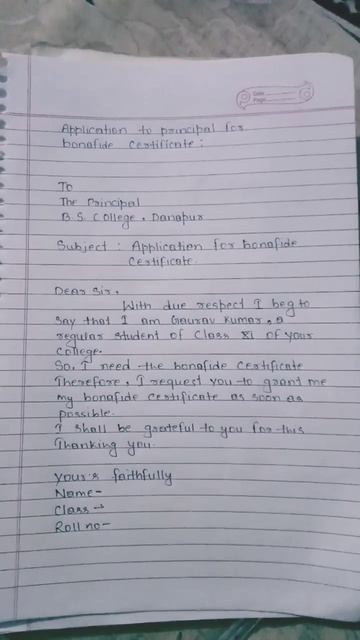 Date
Page
Application to principal for
bonafide certificate :
To
The Principal
B.S. College, Danapur
Subject : Application for bonafide
certificate.
Dear Sir,
With due respect I beg to
say that I am Gaurav Kumar, a
regular student of Class XI of your
college.
So, I need the bonafide certificate
Therefore, I request you to grant me
my bonafide certificate as soon as
possible.
I shall be grateful to you for this
Thanking you.
Your's faithfully
Name-
Class →
Roll no-